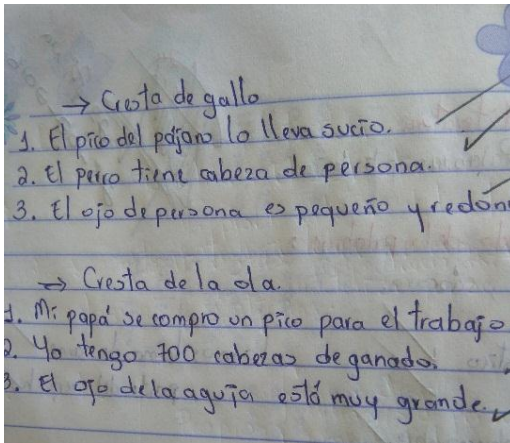 → Cresta de gallo
1. El pico del pájaro lo lleva sucio.
2. El perro tiene cabeza de persona.
3. El ojo de persona es pequeño y redon
→ Cresta de la ola.
1. Mi papá se compro un pico para el trabajo
2. Yo tengo 700 cabezas de ganado.
3. El ojo de la aguja está muy grande.